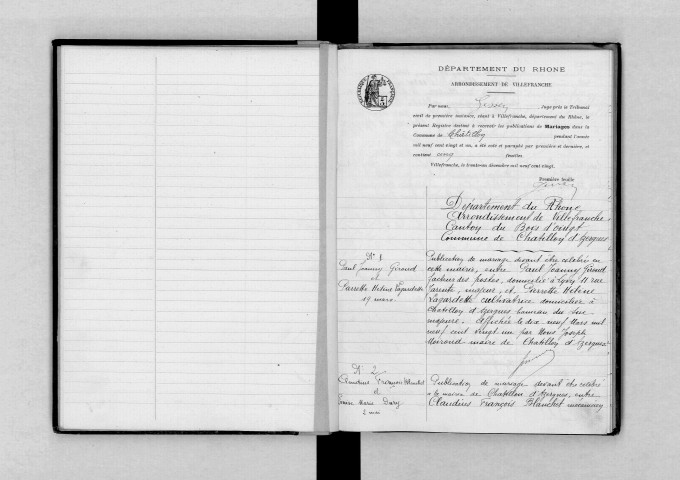 DÉPARTEMENT DU RHONE
ARRONDISSEMENT DE VILLEFRANCHE
Par nous, Juge près le Tribunal
civil de première instance, séant à Villefranche, département du Rhône, le
présent Registre destiné à recevoir les publications de Mariages dans la
Commune de Châtillon pendant l'année
mil neuf cent vingt et un, a été coté et paraphé par première et dernière, et
contient cinq feuilles
Villefranche, le trente-un décembre mil neuf cent vingt.
Première feuille
Département du Rhône
Arrondissement de Villefranche
Canton du Bois d'oingt
Commune de Chatillon d'Azergues
N° 1
Paul Joanny Giroud
et
Pierrette Hélène Lagardette
19 mars
Publication de mariage devant être célébré en
cette mairie, entre Paul Joanny Giroud
facteur des postes, domicilié à Lyon 11 rue
majeur, et Pierrette Hélène
Lagardette cultivatrice domiciliée à
Chatillon d'Azergues hameau du
majeure. Affichée le dix neuf Mars mil
neuf cent vingt un par Nous Joseph
maire de Chatillon d'Azergues
N° 2
Claudius François Blanchet
et
Marie
2 mai
Publication de mariage devant être célébré
à la mairie de Chatillon d'Azergues, entre
Claudius François Blanchet